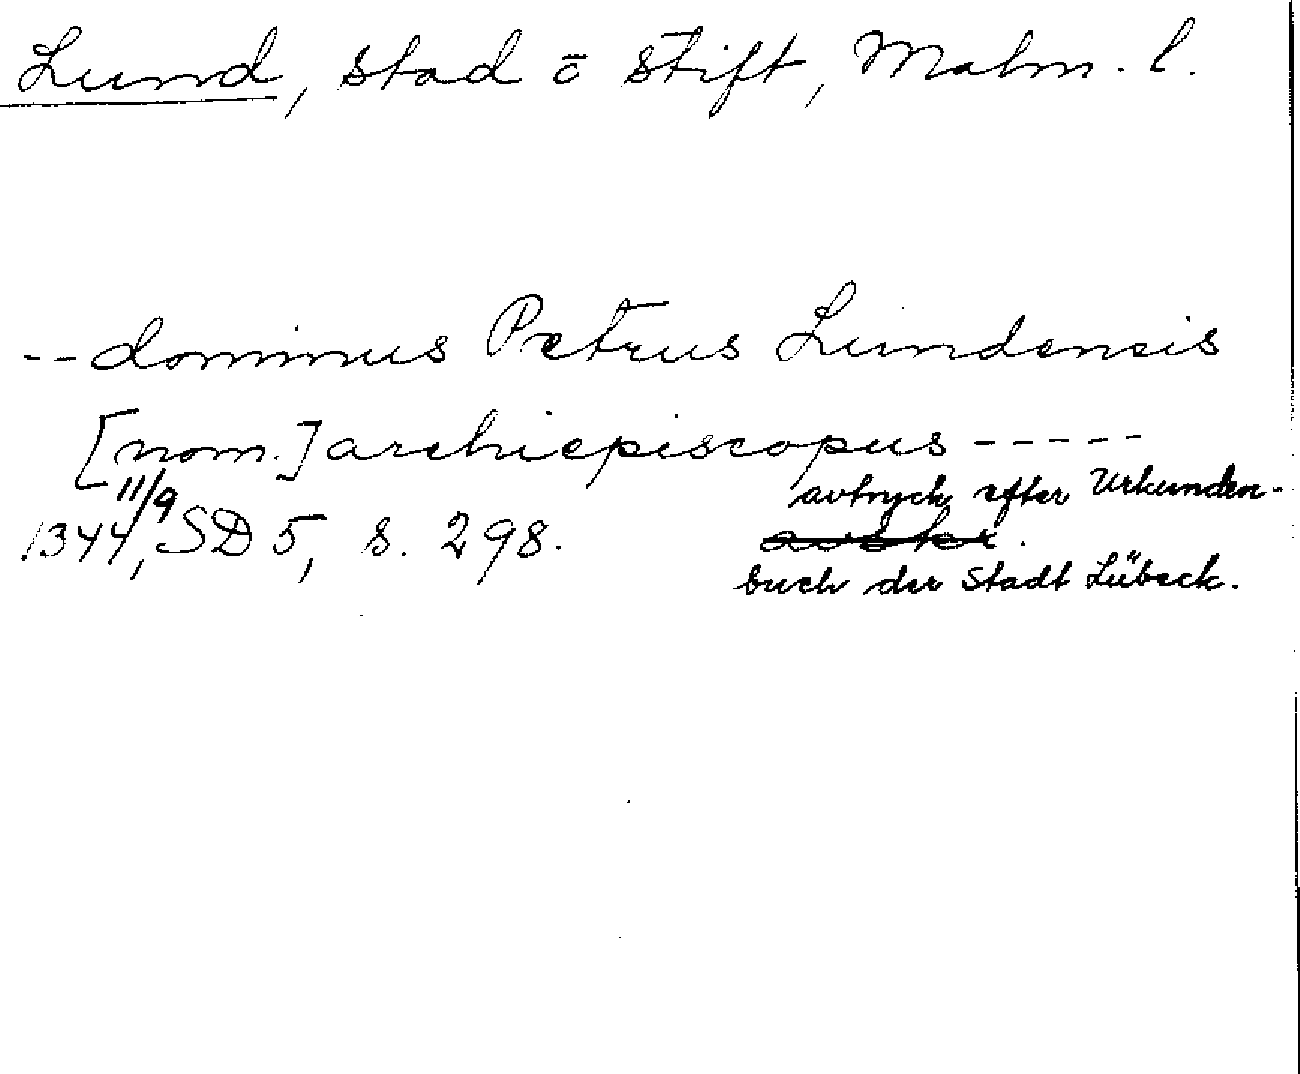 Lund, stad ō stift, Malm. l.
-- dominus Petrus Lundensis
[nom.] archiepiscopus -----
1344 11/9, SD 5, s. 298.
avtryck efter Urkunden-
avskr.
buch der Stadt Lübeck.